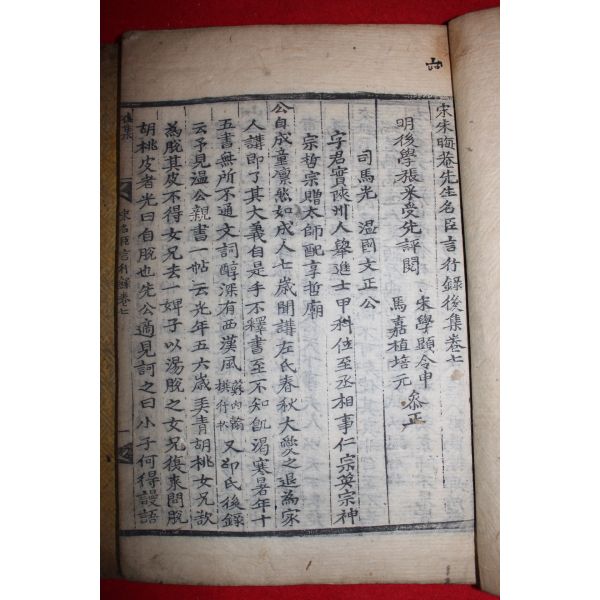 宋朱晦菴先生名臣言行錄後集卷七
明後學張采受先評閱
宋學顯令申
馬嘉植培元 叅正
司馬光 温國文正公
字君實陝州人舉進士甲科位至丞相事仁宗英宗神
宗哲宗贈太師配享哲廟
公自成童凛然如成人七歲聞講左氏春秋大愛之退為家
人講即了其大義自是手不釋書至不知飢渴寒暑年十
五書無所不通文詞醇深有西漢風 蘇內翰 撰行狀 又邵氏後錄
云予見温公親書一帖云光年五六歲弄青胡桃女兄欲
為脫其皮不得女兄去一婢子以湯脫之女兄復來問脫
胡桃皮者光曰自脫也先公適見訶之曰小子何得謾語
後集
宋名臣言行錄卷七
一